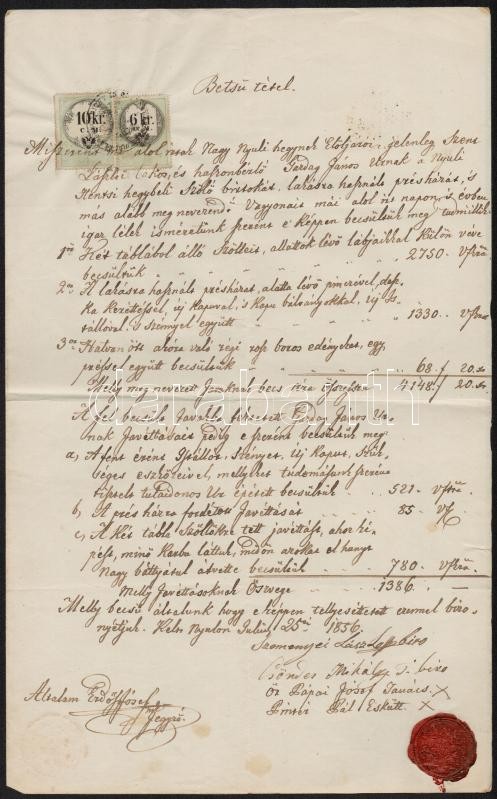 Betsü tétel.
10 kr. 6 kr.
alol irtak Nagy Nyuli hegynek Elöljárói jelenleg Szent
lakos, és haszonbérlő Gárdag János Urnak a Nyuli
hegybeli Szőlő lakásra használt présházát, és
más alább meg nevezend Vagyonait mái alol irt napon, s évben
igaz lélek ismeretünk szerént e képpen becsültük meg
1ör Két táblából álló Szőlleit, alattok lévő lábjaikkal Külön véve
becsültük " " " " 2750. vfrra
2or A lakásra használt présházat, alatta lévő pinczével, desz-
ka keritéssel, új kapuval, s kapu bálványokkal, új Is-
tállóval, és Szinnyel együtt " " " 1330. vfrra
3or Hatvan öt akóra való régi rosz boros edényeket, egy
préssel együtt becsültük " " " 68. f 20. xr
Melly meg nevezett Jószágok becs ára öszvesen 4148. f 20. xr
A fel becsült Javakba tetetett Gárdag János Ur-
nak Javittásait pedig e szerént becsültük meg
a, A fent érentt Istállót, Szinyet, Új Kaput, Szük-
séges eszközeivel, mellyeket tudomásunk szerént
tulajdonos Ur épitett becsültük 521. vfrra
b, A prés házra forditott Javittását 85. vf
c, A két tábla Szőllőkre tett javittást, a hogy ki
mino karba láttuk, midőn azokat el hunyt
Nagy báttyátul átvette becsültük 780. vfrra
Melly Javittásoknak Öszvege 1386.
Melly becsü általunk hogy e képpen tellyesittetett ezennel bizo-
nyitjuk. Kelt Nyulon Julius 25én 1856.
László biro
Mihály T. biro
Őr Pápai Jósef Tanács. X
Pintér Pál Eskütt. X
Általam Erdős Jósef
Jegyző
darabanth